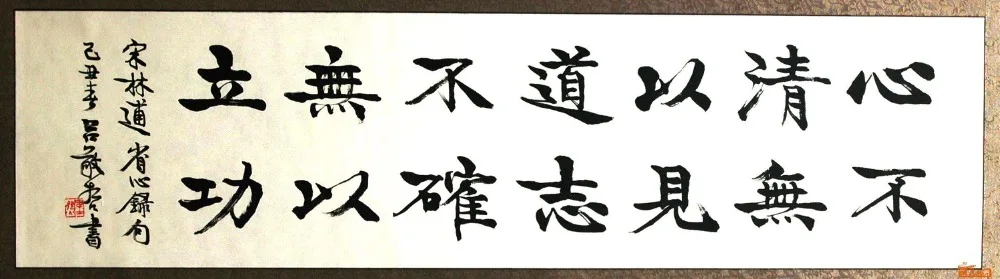 心不
清無
以見
道志
不確
無以
立功
宋林逋省心錄句
己丑春呂敬杏書